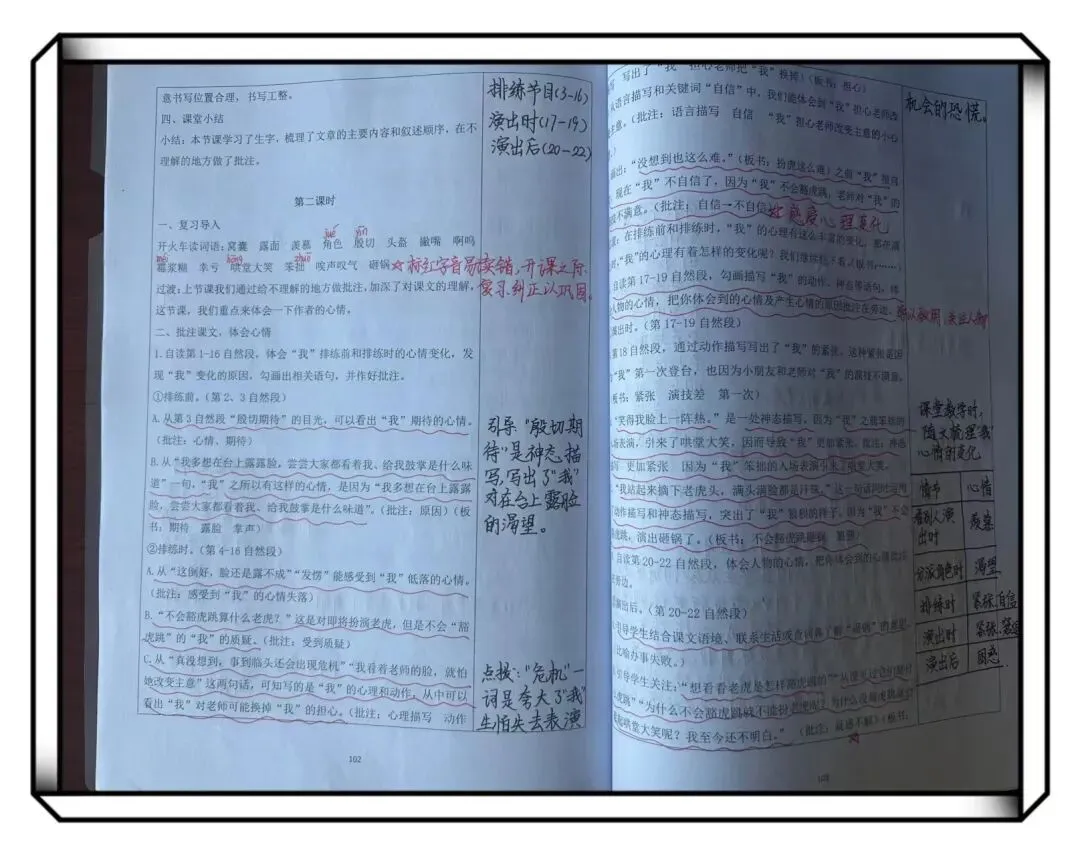 意书写位置合理，书写工整。
四、课堂小结
小结：本节课学习了生字，梳理了文章的主要内容和叙述顺序，在不
理解的地方做了批注。
第二课时
一、复习导入
jué yīn
开火车读词语：窝囊 露面 羡慕 角色 殷切 头盔 撇嘴 啊呜
méi hōng zhuō
霉浆糊 幸亏 哄堂大笑 笨拙 唉声叹气 砸锅
☆标红字音易读错，开课之际
复习纠正以巩固。
过渡：上节课我们通过给不理解的地方做批注，加深了对课文的理解，
这节课，我们重点来体会一下作者的心情。
二、批注课文，体会心情
1.自读第1-16自然段，体会“我”排练前和排练时的心情变化，发
现“我”变化的原因，勾画出相关语句，并作好批注。
①排练前。（第2、3自然段）
A.从第3自然段“殷切期待”的目光，可以看出“我”期待的心情。
（批注：心情、期待）
B.从“我多想在台上露露脸，尝尝大家都看着我、给我鼓掌是什么味
道”一句，“我”之所以有这样的心情，是因为“我多想在台上露露
脸，尝尝大家都看着我、给我鼓掌是什么味道”。（批注：原因）（板
书：期待 露脸 掌声）
②排练时。（第4-16自然段）
A.从“这倒好，脸还是露不成”“发愣”能感受到“我”低落的心情。
（批注：感受到“我”的心情失落）
B.“不会豁虎跳算什么老虎？”这是对即将扮演老虎，但是不会“豁
虎跳”的“我”的质疑。（批注：受到质疑）
C.从“真没想到，事到临头还会出现危机”“我看着老师的脸，就怕
她改变主意”这两句话，可知写的是“我”的心理和动作，从中可以
看出“我”对老师可能换掉“我”的担心。（批注：心理描写 动作
102
排练节目(3-16)
演出时(17-19)
演出后(20-22)
引导“殷切期
待”是神态描
写，写出了“我”
对在台上露脸
的渴望。
点拨：“危机”一
词是夸大了“我”
生怕失去表演
写出了“我”担心老师把“我”换掉）（板书：担心）
从语言描写和关键词“自信”中，我们能体会到“我”担心老师改
主意。（批注：语言描写 自信 “我”担心老师改变主意的小心
“没想到也这么难。”（板书：扮虎这么难）之前“我”挺自
现在“我”不自信了，因为“我”不会豁虎跳，老师对“我”的
不满意。（批注：自信→不自信）
感受心理变化
：在排练前和排练时，“我”的心理有这么丰富的变化，那在演
“我”的心理有着怎样的变化呢？我们继续往下看。（板书：……）
自读第17-19自然段，勾画描写“我”的动作、神态等语句，体
人物的心情，把你体会到的心情及产生心情的原因批注在旁边。
演出时。（第17-19自然段）
第18自然段，通过动作描写写出了“我”的紧张，这种紧张是因
“我”第一次登台，也因为小朋友和老师对“我”的演技不满意。
板书：紧张 演技差 第一次）
“笑得我脸上一阵热。”是一处神态描写，因为“我”之前笨拙的
场表演，引来了哄堂大笑，因而导致“我”更加紧张。（批注：神态
写 更加紧张 因为“我”笨拙的入场表演引来了哄堂大笑。
“我站起来摘下老虎头，满头满脸都是汗珠。”这一句话同时运用
动作描写和神态描写，突出了“我”紧张的样子，因为“我”不会
虎跳，演出砸锅了。（板书：不会豁虎跳砸锅 紧张）
自读第20-22自然段，体会人物的心情，把你体会到的心情批注
旁边。
演出后。（第20-22自然段）
引导学生结合课文语境、联系生活或查词典了解“砸锅”的意思。
比喻办事失败。）
引导学生关注：“想看看老虎是怎样豁虎跳的”“从来不过
虎跳”“为什么不会豁虎跳就不能扮老虎呢？为什么没豁虎跳就会
哄堂大笑呢？我至今还不明白。”（批注：疑惑不解）（板书：
机会的恐慌。
课堂教学时，
随文梳理“我”
心情的变化
情节 心情
看别人演出时 羡慕
分派角色时 渴望
排练时 紧张、自信
演出时 紧张
演出后 困惑